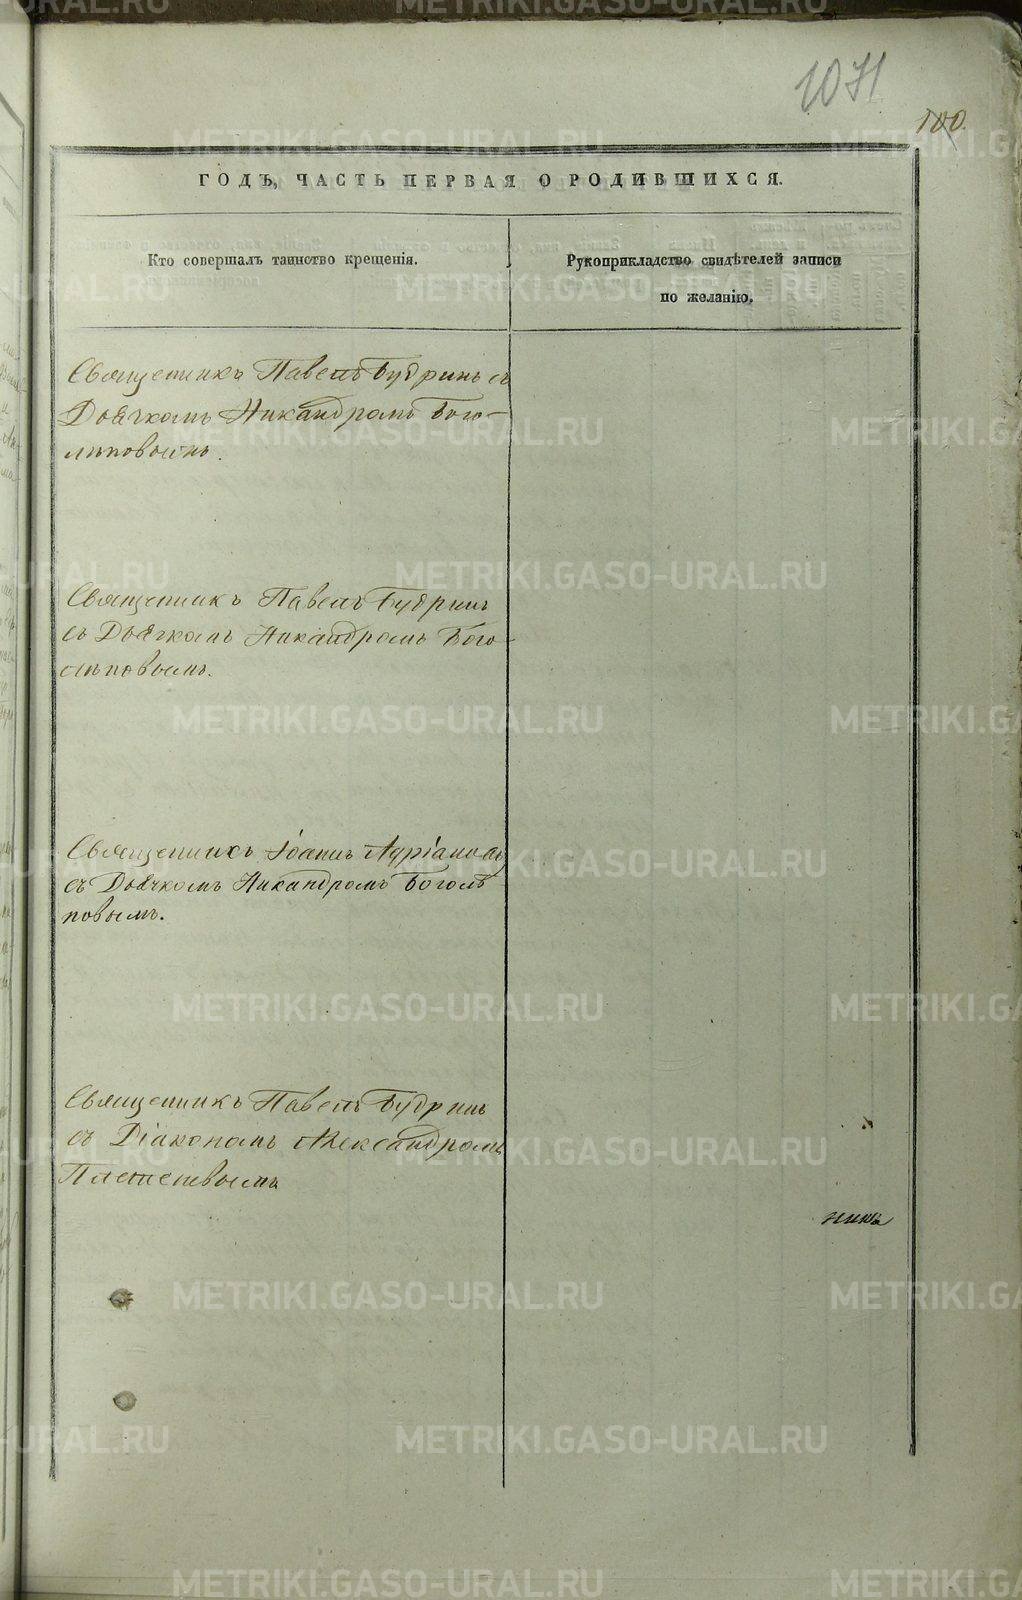 1071
100.
ГОДЪ, ЧАСТЬ ПЕРВАЯ О РОДИВШИХСЯ.
Кто совершалъ таинство крещенія.
Рукоприкладство свидѣтелей записи
по желанію.
Священникъ Павелъ Будринъ съ
Дьячкомъ Никандромъ Бого-
лѣповымъ.
Священникъ Павелъ Будринъ
съ Дьячкомъ Никандромъ Бого-
лѣповымъ.
Священникъ Іоаннъ Адріановъ
съ Дьячкомъ Никандромъ Боголѣ-
повымъ.
Священникъ Павелъ Будринъ
съ Діакономъ Александромъ
METRIKI.GASO-URAL.RU